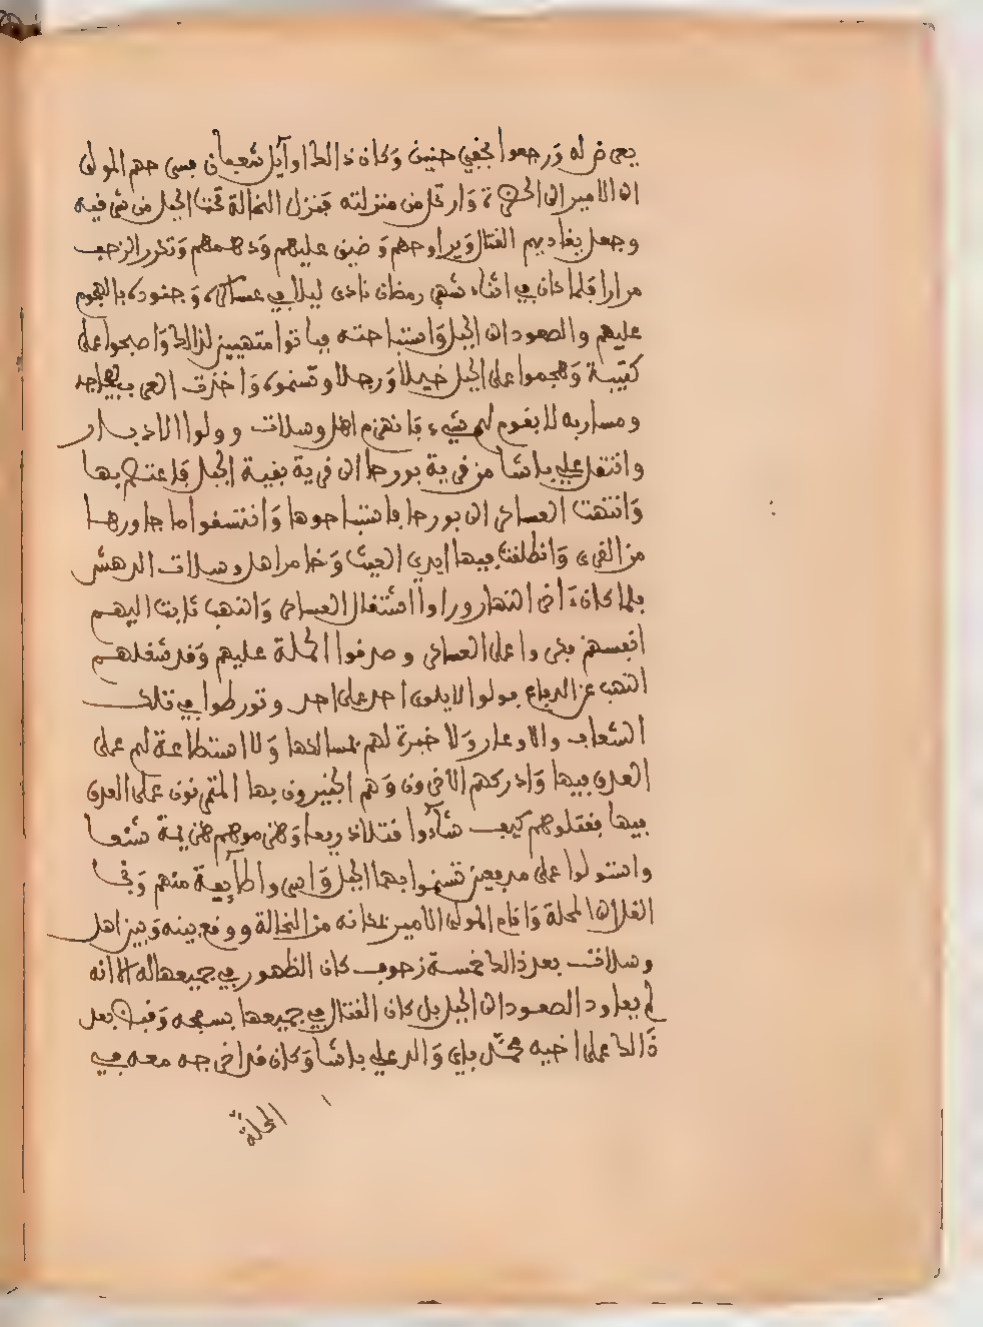 يعرض له ورجعوا بخفي حنين وكان ذالك اوآيل شعبان فسرحهم المولى
الى الامير الى الحضرة وارتحل من منزلته فنزل النخالة تحت الجبل من شرفيه
وجعل يغاديهم القتال ويراوحهم وضيق عليهم ودهمهم وتكرر الزحف
مرارا فلما كان في اثناء شهر رمضان نادى ليلا في عساكره وجنوده بالهجوم
عليهم والصعود الى الجبل واستباحته فباتوا متهيين لذالك واصبحوا على
كتيبة وهجموا على الجبل خيلا ورجلا وتسنموه واخذت العرب
ومساربه لا يقوم لهم شيء فانهزم اهل وسلات وولوا الادبار
وانتقل علي باشا من قرية بورحا الى قرية بقية الجبل فاعتصم بها
وانتهت العساكر الى بورحا فاستباحوها وانتسفوا ما جاورها
من القرى وانطلقت فيها ايدي العيث وخامر اهل وسلات الدهش
فلما كان ءاخر النهار وراوا اشتغال العساكر والنهب ثابت اليهم
انفسهم فكروا على العساكر وصدقوا الحملة عليهم وقد شغلهم
النهب عن الدفاع فولوا لا يلوى احد على احد وتورطوا في تلك
الشعاب والاوعار ولا خبرة لهم بمسالكها ولا استطاعة لهم على
العدو فيها وادركهم الاخرون وهم الخبيرون بها المتمرنون على العدو
فيها فقتلوهم كيف شآءوا قتلا ذريعا وهزموهم هزيمة شنعا
واستولوا على مدفعين تسنموا بهما الجبل واسروا طآيفة منهم ونجا
الفل الى المحلة واقام المولى الامير بمكانه من النخالة ووقع بينه وبين اهل
وسلات بعد ذالك خمسة زحوف كان الظهور في جميعها له الا انه
لم يعاود الصعود الى الجبل بل كان القتال في جميعها بسفحه وقبض بعد
ذالك على اخيه محمد باي والد علي باشا وكان قد اخرجه معه في
المحلة